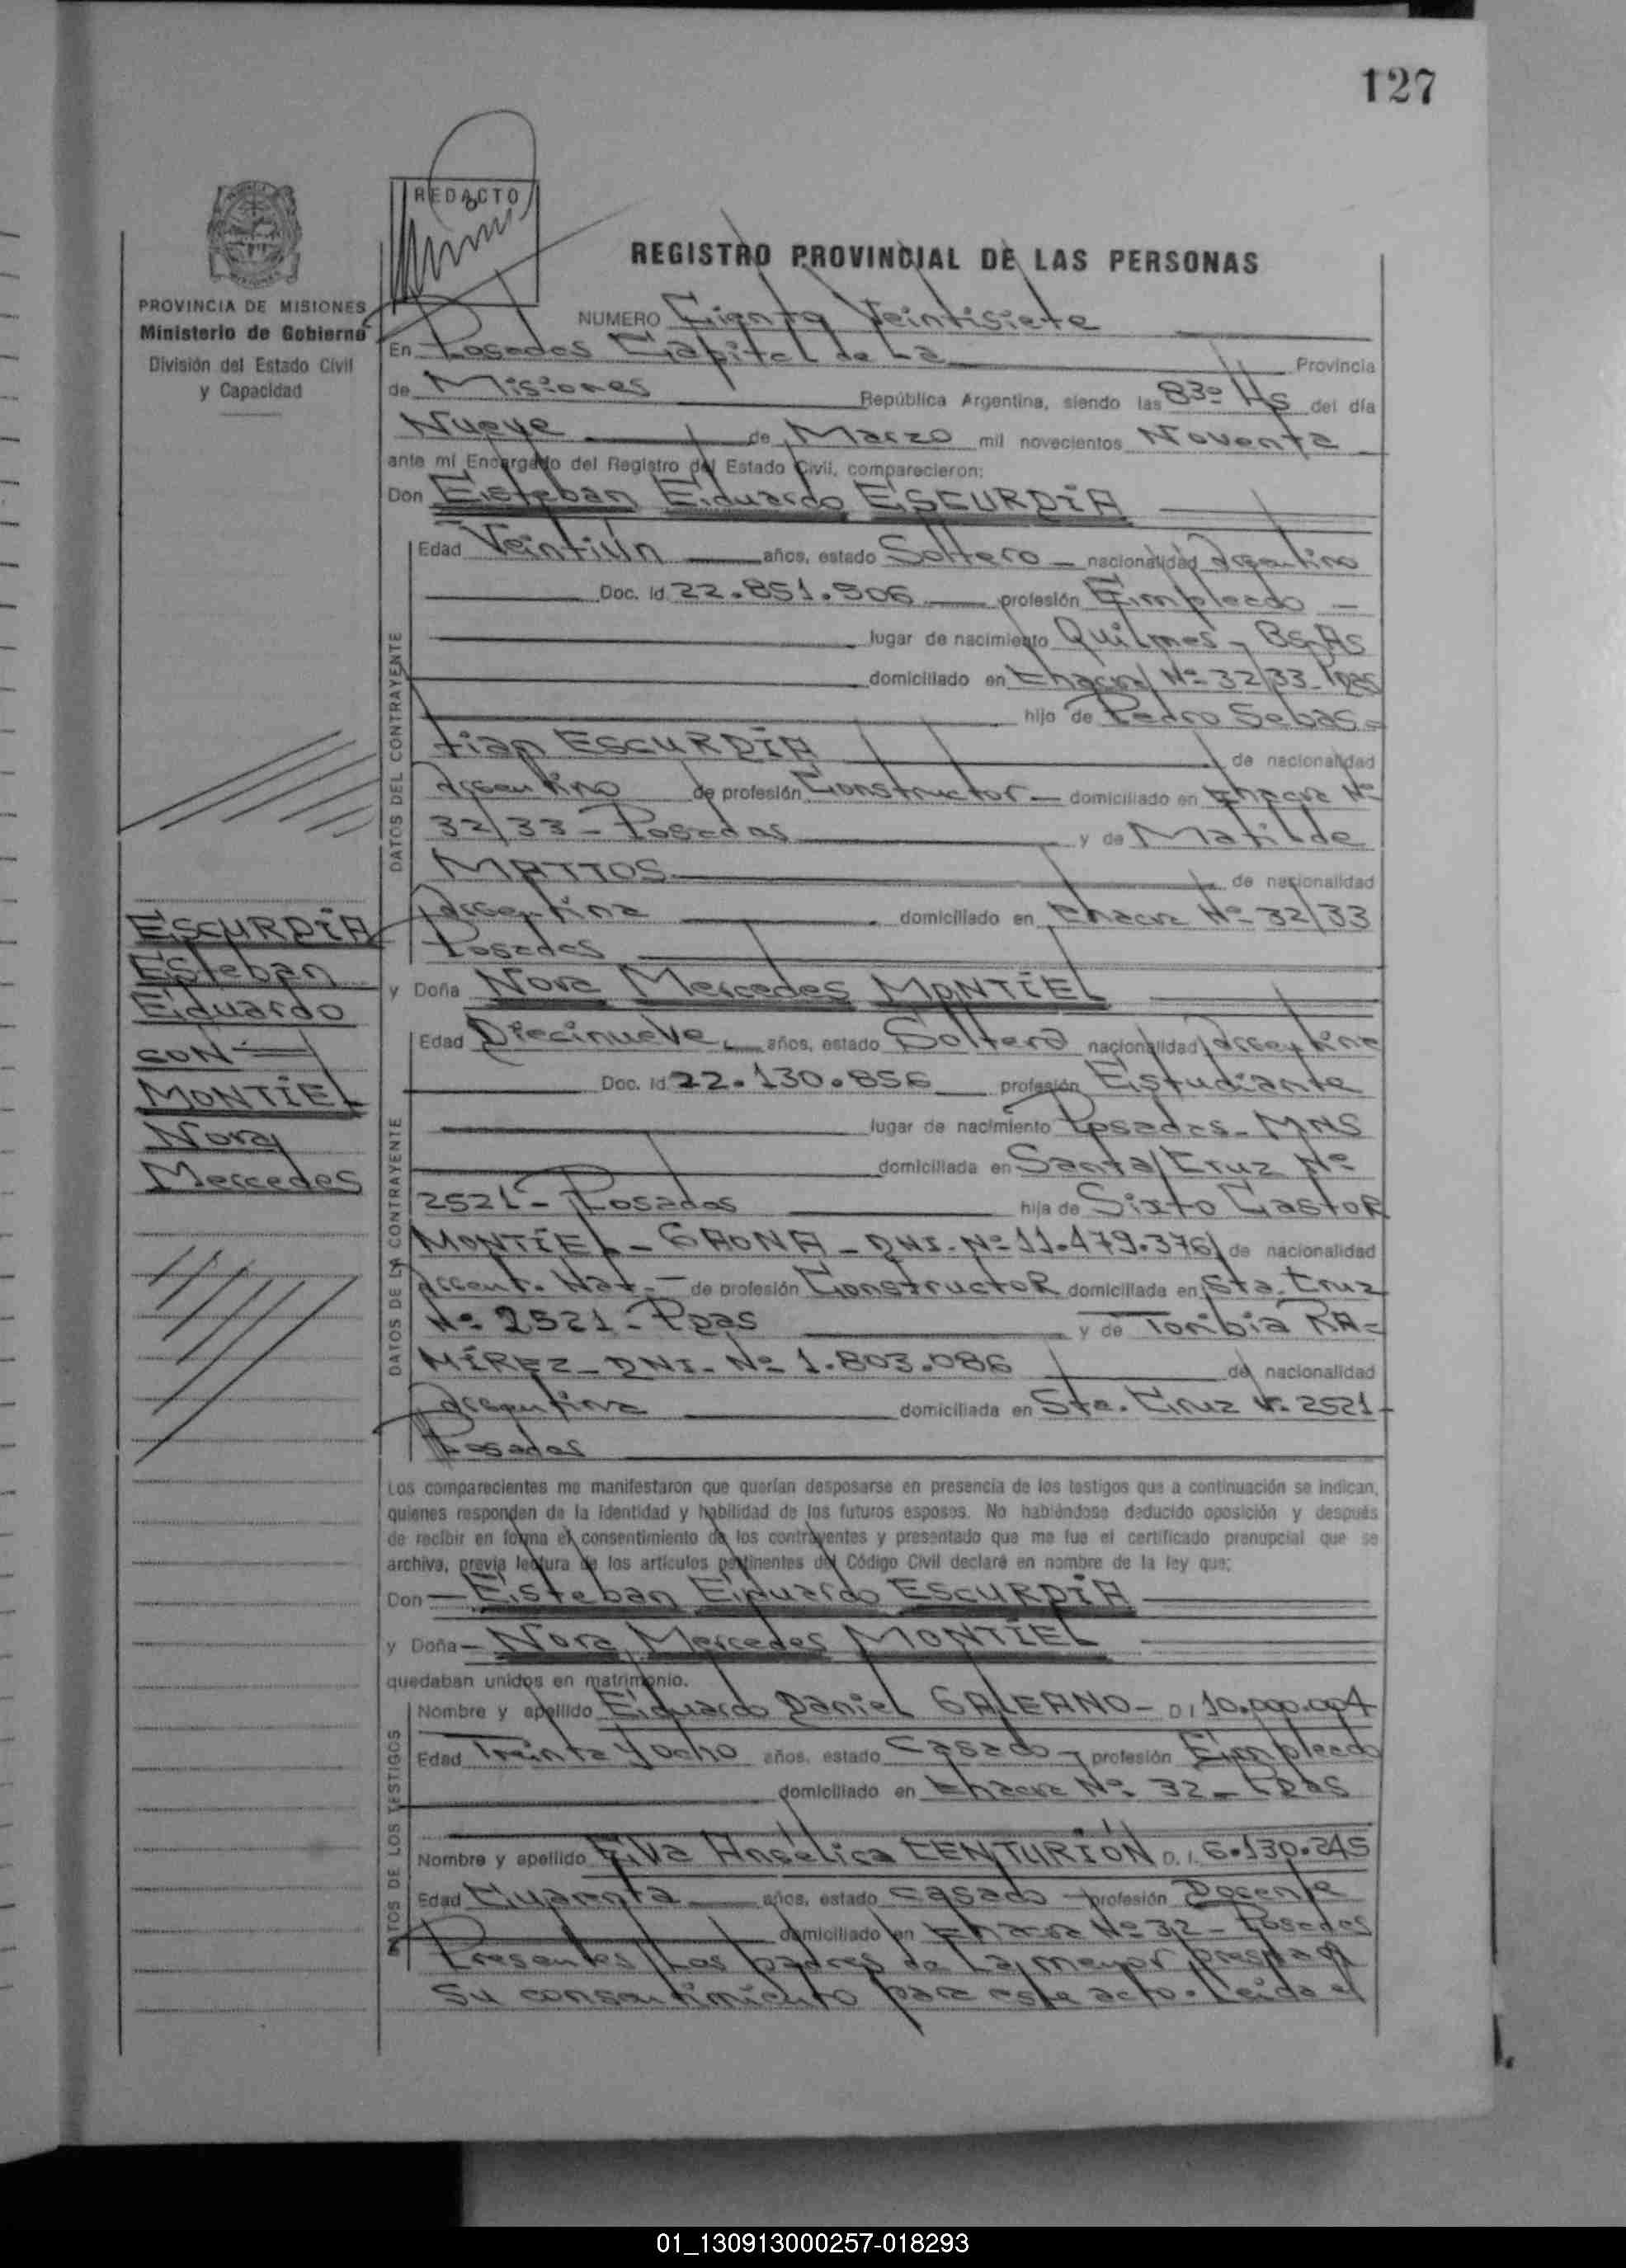 127
REDACTO
REGISTRO PROVINCIAL DE LAS PERSONAS
PROVINCIA DE MISIONES
Ministerio de Gobierno
División del Estado Civil
y Capacidad
NUMERO Ciento Veintisiete
En Posadas Capital de La Provincia
de Misiones República Argentina, siendo las 8³⁰ Hs del día
Nueve de Marzo mil novecientos Noventa
ante mí Encargado del Registro del Estado Civil, comparecieron:
Don Esteban Eduardo ESCURDIA
DATOS DEL CONTRAYENTE
Edad Veintiún años, estado Soltero nacionalidad Argentino
Doc. Id. 22.851.906 profesión Empleado
lugar de nacimiento Quilmes - Bs-As
domiciliado en Chacra Nº 32/33 - Pdas
hijo de Pedro Sebas=
tian ESCURDIA de nacionalidad
Argentino de profesión Constructor domiciliado en Chacra Nº
32/33 - Posadas y de Matilde
MATTOS de nacionalidad
Argentina domiciliado en Chacra Nº 32/33
Posadas
ESCURDIA
Esteban
Eduardo
CON =
MONTIEL
Nora
Mercedes
y Doña Nora Mercedes MONTIEL
DATOS DE LA CONTRAYENTE
Edad Diecinueve años, estado Soltera nacionalidad Argentina
Doc. Id. 22.130.856 profesión Estudiante
lugar de nacimiento Posadas - MNS
domiciliada en Santa Cruz Nº
2521 - Posadas hija de Sixto Castor
MONTIEL - GAONA - DNI - Nº 11.479.376 de nacionalidad
Argent. Nat. - de profesión Constructor domiciliada en Sta. Cruz
Nº 2521 - Pdas y de Toribia RA=
MÍREZ - DNI - Nº 1.803.086 de nacionalidad
Argentina domiciliada en Sta. Cruz Nº 2521 -
Posadas
Los comparecientes me manifestaron que querían desposarse en presencia de los testigos que a continuación se indican,
quienes responden de la identidad y habilidad de los futuros esposos. No habiéndose deducido oposición y después
de recibir en forma el consentimiento de los contrayentes y presentado que me fue el certificado prenupcial que se
archiva, previa lectura de los artículos pertinentes del Código Civil declaré en nombre de la ley que:
Don - Esteban Eduardo ESCURDIA
y Doña - Nora Mercedes MONTIEL
quedaban unidos en matrimonio.
DATOS DE LOS TESTIGOS
Nombre y apellido Eduardo Daniel GALEANO - D I 10.000.004
Edad Treinta y Ocho años, estado Casado - profesión Empleado
domiciliado en Chacra Nº 32 - Pdas
Nombre y apellido Elva Angélica CENTURIÓN D. I. 6.130.245
Edad Cuarenta años, estado Casado - profesión Docente
domiciliado en Chacra Nº 32 - Posadas
Presentes Los padres de La menor prestan
Su consentimiento para este acto. Leida el
01_130913000257-018293